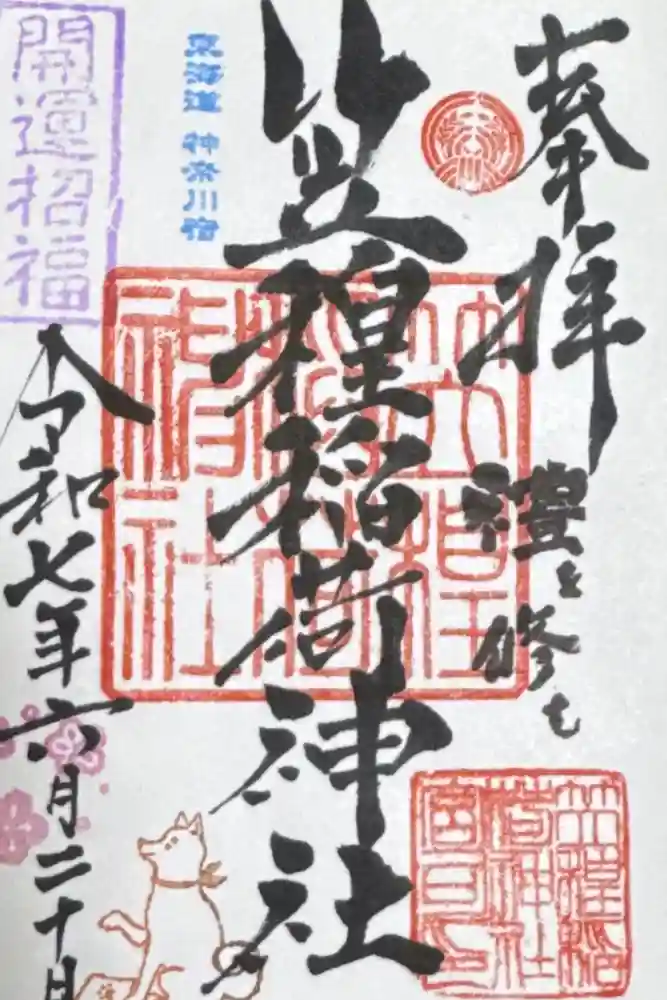 奉拝
禮を修む
笠䅣稲荷神社
東海道 神奈川宿
開運招福
令和七年六月二十日
笠䅣稲
荷神社
宮司之印